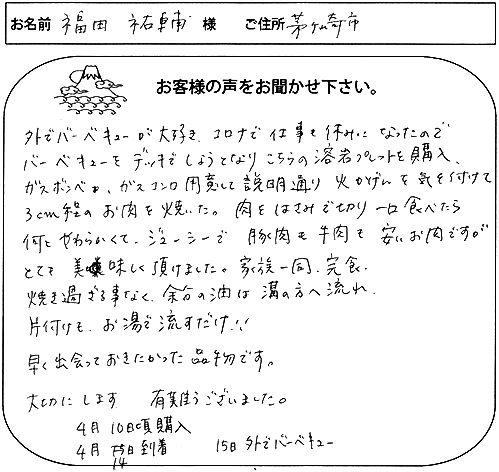 お名前 福田 祐輔 様 ご住所 茅ヶ崎市
お客様の声をお聞かせ下さい。
外でバーベキューが大好き、コロナで仕事も休みになったので
バーベキューをデッキでしようとなりこちらの溶岩プレートを購入、
ガスボンベ、ガスコンロ用意して説明通り火かげんを気を付けて
3cm程のお肉を焼いた。肉をはさみで切り一口食べたら
何とやわらかくて、ジューシーで 豚肉も牛肉も 安いお肉ですが
とても 美味しく頂けました。家族一同、完食、
焼き過ぎる事なく、余分の油は溝の方へ流れ、
片付けも、お湯で流すだけ!!
早く出会っておきたかった品物です。
大切にします 有難うございました。
4月 10日頃購入
4月 14日到着 15日外でバーベキュー